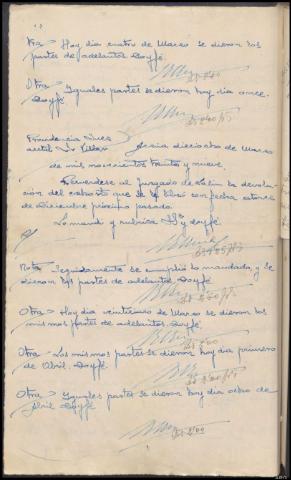 Otra - Hoy dia cuatro de Marzo se dieron los
partes de adelantos. Doyfé.
Otra - Iguales partes se dieron hoy dia once.
Doyfé.
Providencia Juez
acctal Sr Villar
dieciocho de Marzo
de mil novecientos treinta y nueve.
Recuerdese al Juzgado de Lalin la devolu-
cion del exhorto que se le libró con fecha catorce
de Diciembre próximo pasado.
Lo mandó y rubrica SSª doyfé
Nota - Seguidamente se cumplió lo mandado, y se
dieron los partes de adelantos. Doyfé.
Otra - Hoy dia veinticinco de Marzo se dieron los
mismos partes de adelantos. Doyfé.
Otra - Los mismos partes se dieron hoy dia primero
de Abril. Doyfé.
Otra - Iguales partes se dieron hoy dia ocho de
Abril. Doyfé